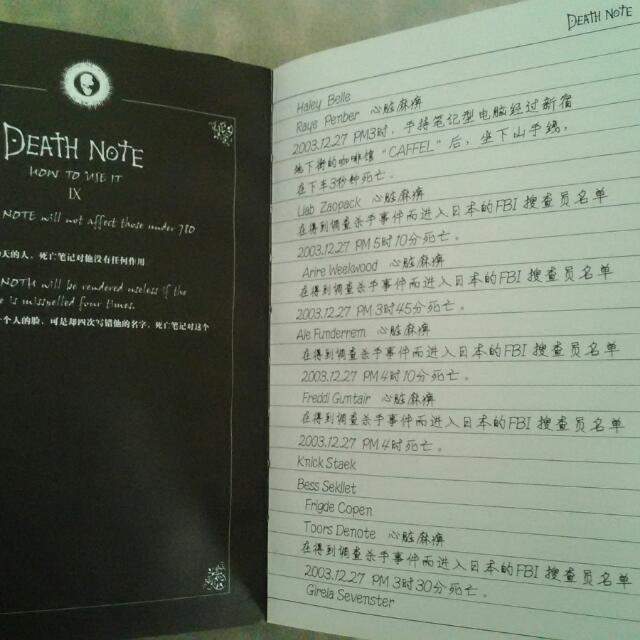 DEATH NOTE
HOW TO USE IT
IX
NOTE will not affect those under 780
天的人，死亡笔记对他没有任何作用
NOTE will be rendered useless if the
e is misspelled four times.
一个人的脸，可是却四次写错他的名字，死亡笔记对这个
DEATH NOTE
Haley Belle
Raye Penber 心脏麻痹
2003.12.27 PM3时，手持笔记型电脑经过新宿
地下街的咖啡馆“CAFFEL”后，坐下山手线，
在下车3秒钟死亡。
Liab Zaopack 心脏麻痹
在得到调查杀手事件而进入日本的FBI 搜查员名单
2003.12.27 PM 5时10分死亡。
Arire Weekwood 心脏麻痹
在得到调查杀手事件而进入日本的FBI 搜查员名单
2003.12.27 PM 3时45分死亡。
Ale Funderrem 心脏麻痹
在得到调查杀手事件而进入日本的FBI 搜查员名单
2003.12.27 PM 4时10分死亡。
Freddi Guntair 心脏麻痹
在得到调查杀手事件而进入日本的FBI 搜查员名单
2003.12.27 PM 4时死亡。
Knick Staek
Bess Sekllet
Frigde Copen
Toors Denote 心脏麻痹
在得到调查杀手事件而进入日本的FBI 搜查员名单
2003.12.27 PM 3时30分死亡。
Girela Sevenster